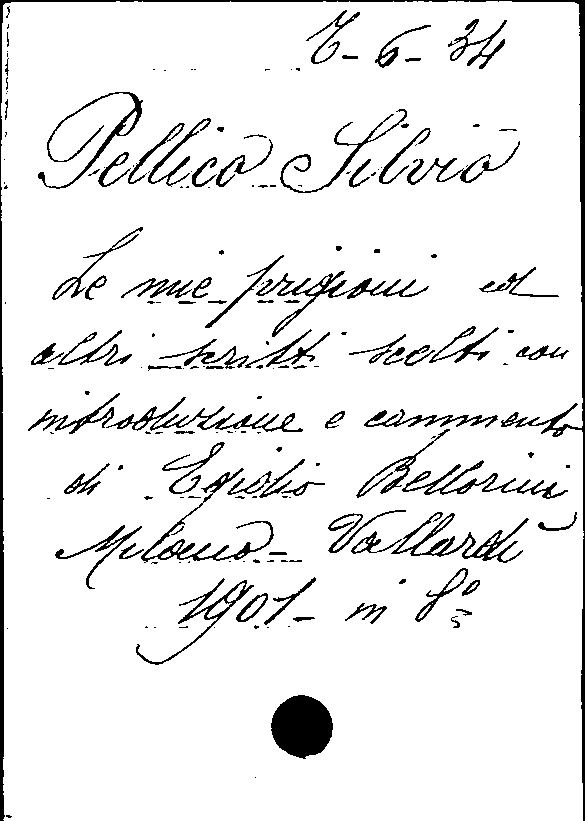 7-6-34
Pellico Silvio
Le mie prigioni ed
altri scritti scelti con
introduzione e commento
di Egidio Bellorini
Milano - Vallardi
1901 - in 8º